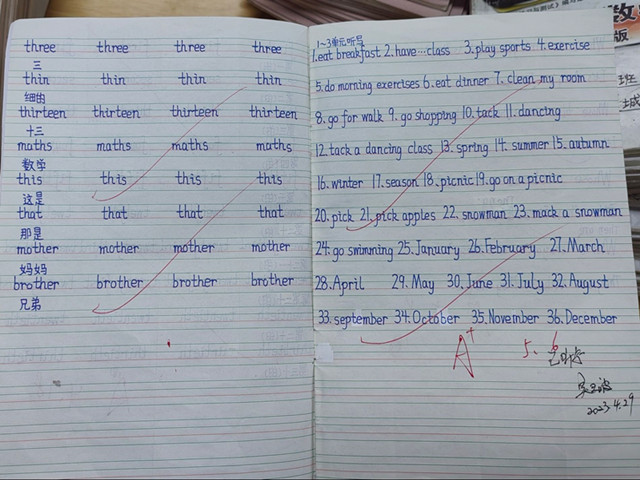 three three three three
三
thin thin thin thin
细的
thirteen thirteen thirteen thirteen
十三
maths maths maths maths
数学
this this this this
这是
that that that that
那是
mother mother mother mother
妈妈
brother brother brother brother
兄弟
1~3单元听写
1.eat breakfast 2.have…class 3.play sports 4.exercise
5.do morning exercises 6.eat dinner 7.clean my room
8.go for walk 9.go shopping 10.tack 11.dancing
12.tack a dancing class 13.spring 14.summer 15.autumn
16.winter 17.season 18.picnic 19.go on a picnic
20.pick 21.pick apples 22.snowman 23.mack a snowman
24.go swimming 25.January 26.February 27.March
28.April 29.May 30.June 31.July 32.August
33.september 34.October 35.November 36.December
A+
5.6
2023.4.29
数
版
班